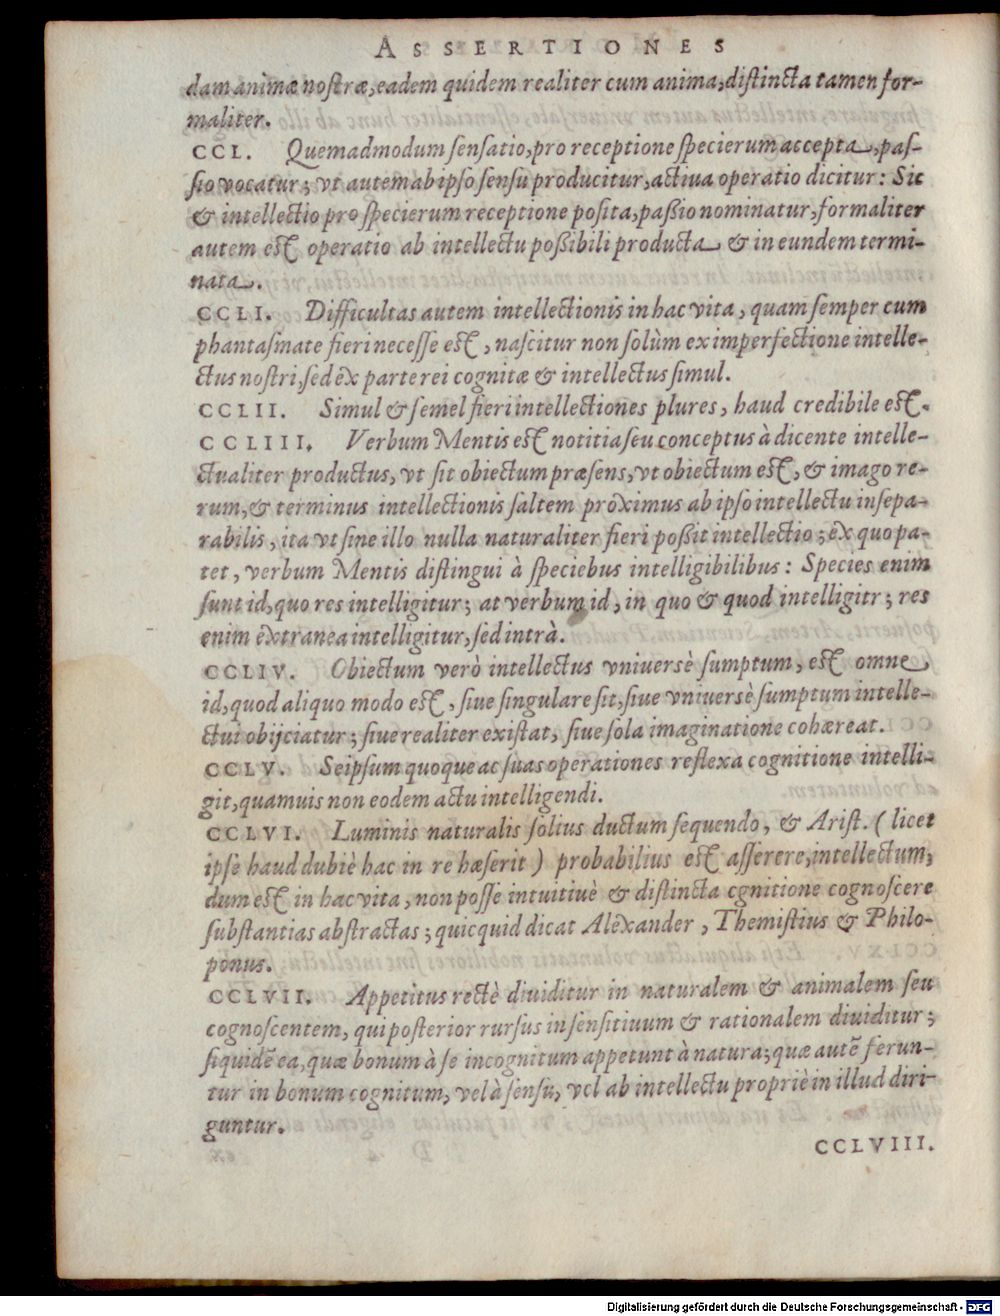 ASSERTIONES
dam animæ nostræ, eadem quidem realiter cum anima, distincta tamen for-
maliter.
CCL. Quemadmodum sensatio, pro receptione specierum accepta, pas-
sio vocatur; vt autem ab ipso sensu producitur, actiua operatio dicitur: Sic
& intellectio pro specierum receptione posita, passio nominatur, formaliter
autem est operatio ab intellectu possibili producta & in eundem termi-
nata.
CCLI. Difficultas autem intellectionis in hac vita, quam semper cum
phantasmate fieri necesse est, nascitur non solùm ex imperfectione intelle-
ctus nostri, sed ex parte rei cognitæ & intellectus simul.
CCLII. Simul & semel fieri intellectiones plures, haud credibile est.
CCLIII. Verbum Mentis est notitia seu conceptus à dicente intelle-
ctualiter productus, vt sit obiectum præsens, vt obiectum est, & imago re-
rum, & terminus intellectionis saltem proximus ab ipso intellectu insepa-
rabilis, ita vt sine illo nulla naturaliter fieri possit intellectio; ex quo pa-
tet, verbum Mentis distingui à speciebus intelligibilibus: Species enim
sunt id, quo res intelligitur; at verbum id, in quo & quod intelligitr; res
enim extranea intelligitur, sed intrà.
CCLIV. Obiectum verò intellectus vniuersè sumptum, est omne,
id, quod aliquo modo est, siue singulare sit, siue vniuersè sumptum intelle-
ctui obijciatur; siue realiter existat, siue sola imaginatione cohæreat.
CCLV. Seipsum quoque ac suas operationes reflexa cognitione intelli-
git, quamuis non eodem actu intelligendi.
CCLVI. Luminis naturalis solius ductum sequendo, & Arist. (licet
ipse haud dubiè hac in re hæserit) probabilius est asserere, intellectum,
dum est in hac vita, non posse intuitiuè & distincta cgnitione cognoscere
substantias abstractas; quicquid dicat Alexander, Themistius & Philo-
ponus.
CCLVII. Appetitus rectè diuiditur in naturalem & animalem seu
cognoscentem, qui posterior rursus in sensitiuum & rationalem diuiditur;
siquidē ea, quæ bonum à se incognitum appetunt à natura; quæ autē ferun-
tur in bonum cognitum, vel à sensu, vel ab intellectu propriè in illud diri-
guntur.
CCLVIII.
Digitalisierung gefördert durch die Deutsche Forschungsgemeinschaft - DFG